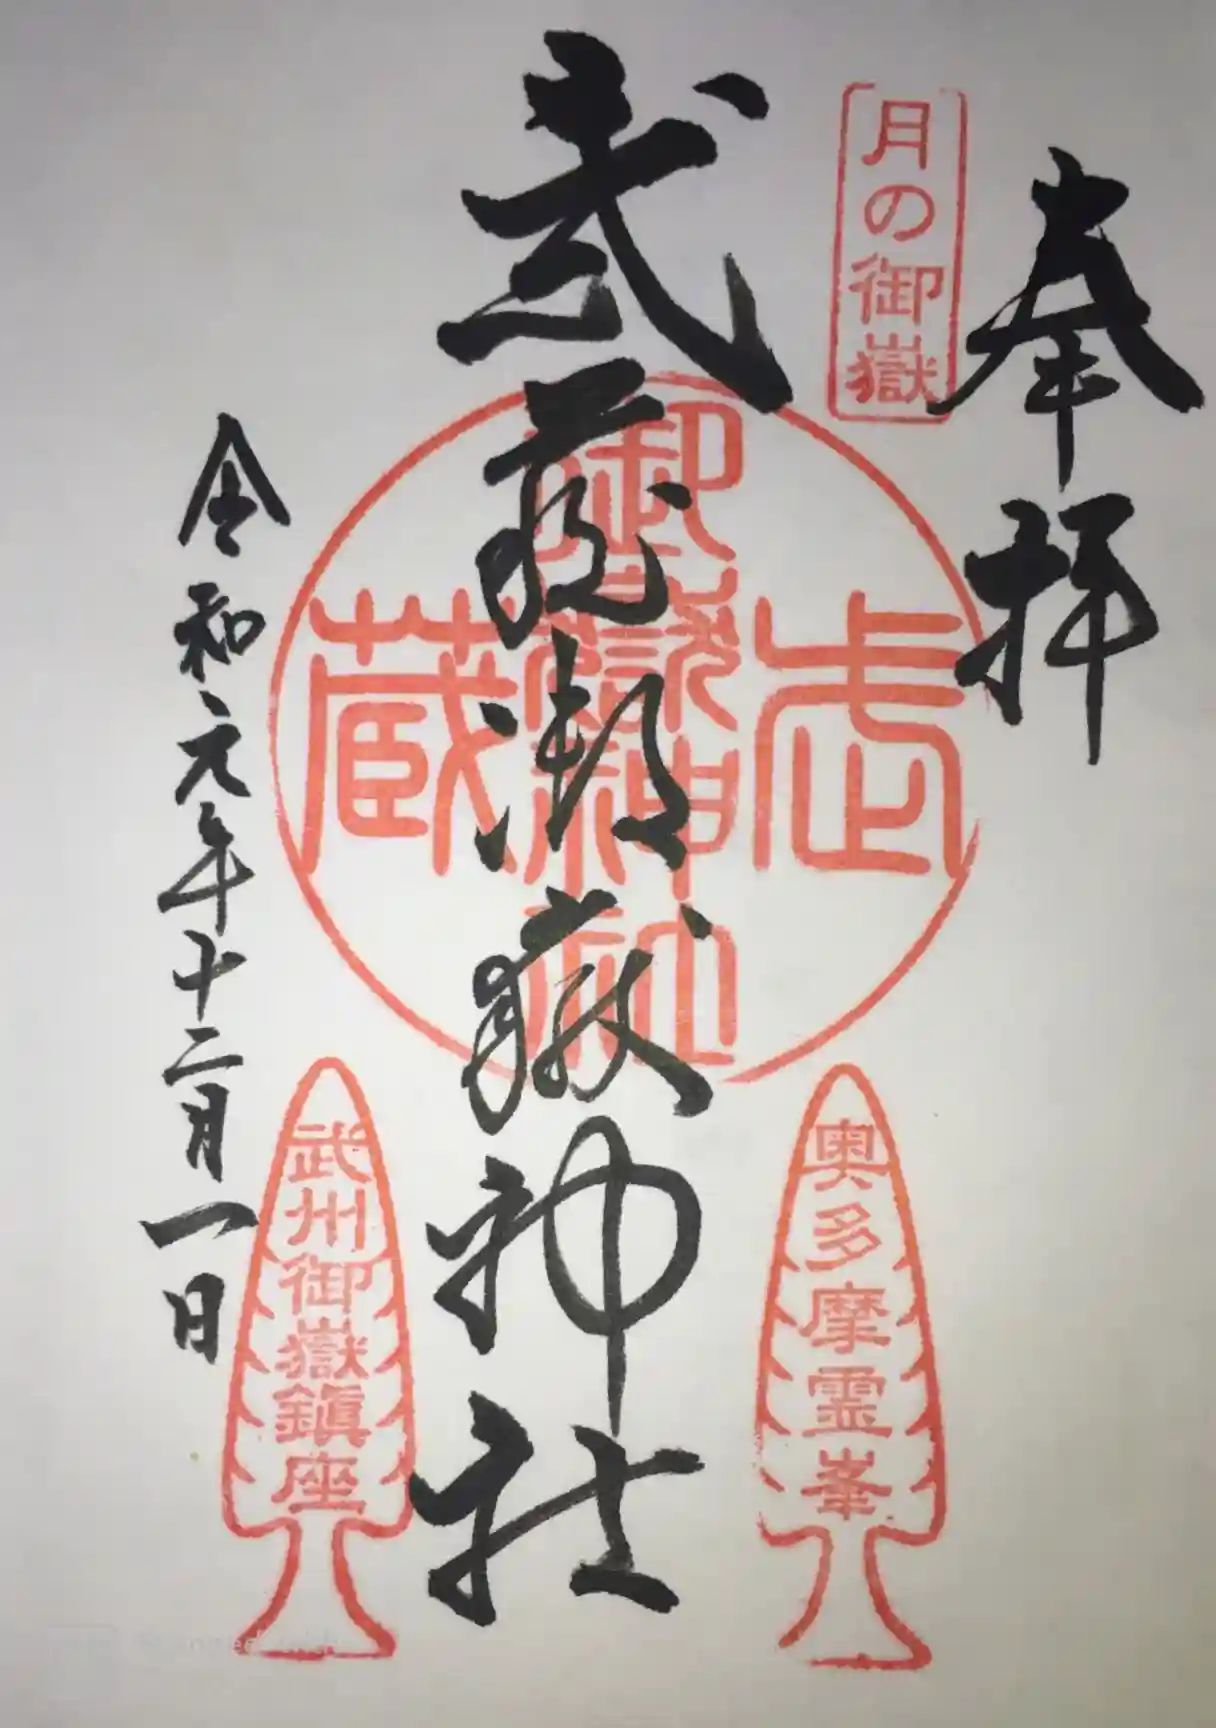 奉拝
月の御嶽
武蔵御嶽神社
武蔵
御嶽神社
奥多摩霊峯
武州御嶽鎮座
令和元年十二月一日